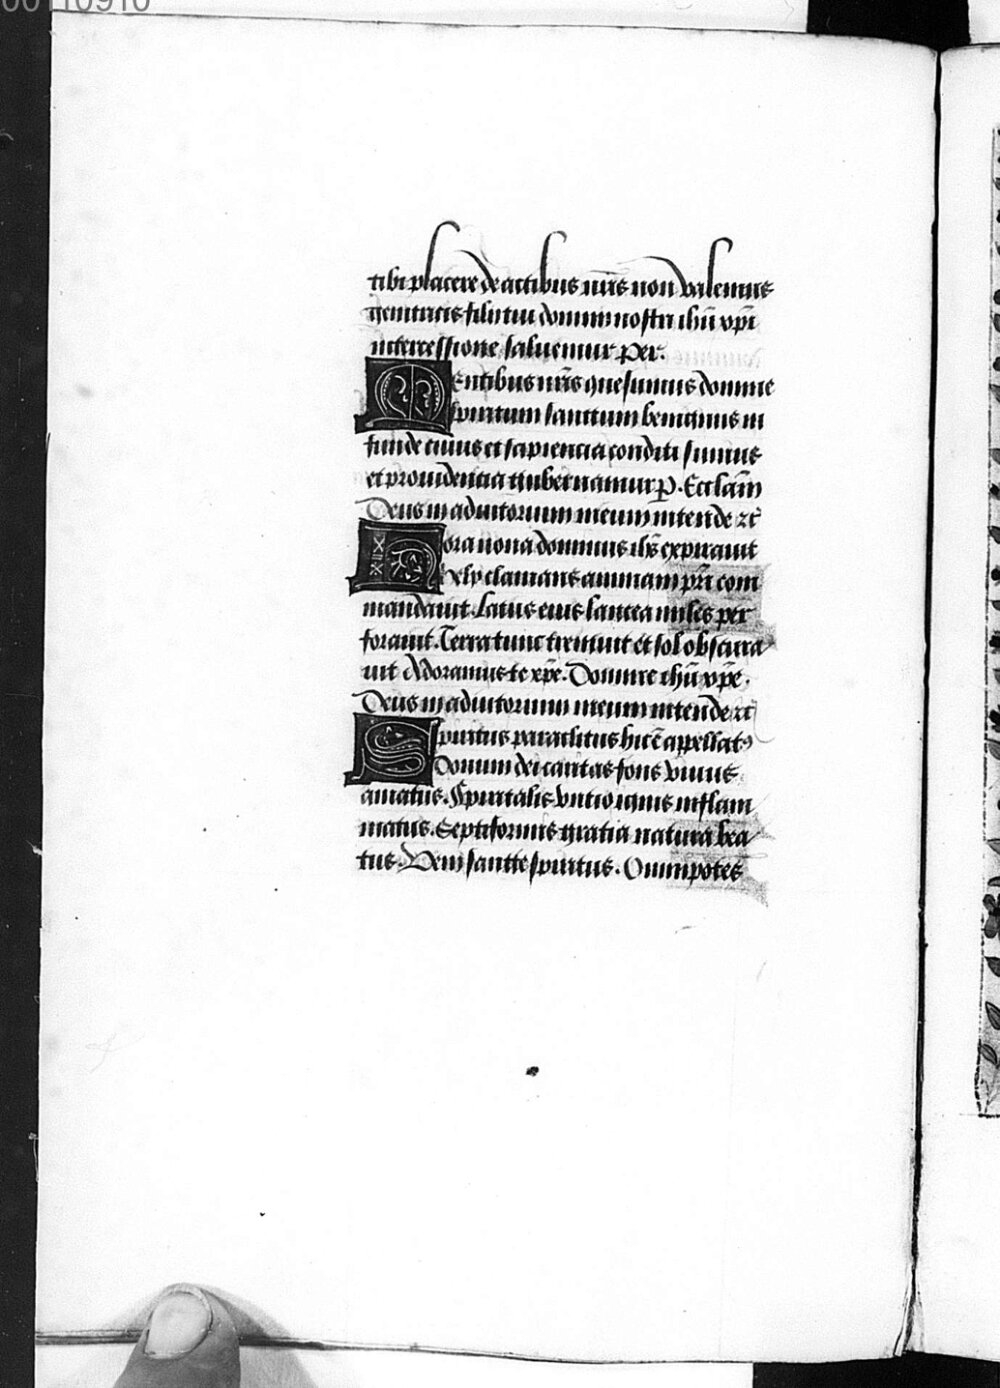 00110910
tibi placere de actibus nr̄is non valemus
genitricis filii tui domini nostri ihū xp̄i
intercessione saluemur Per.
Mentibus nr̄is quesumus domine
spiritum sanctum benignus in
funde cuius et sapiencia conditi sumus
et prouidencia gubernamur P. Eccl̄am
Deus in adiutorium meum intende ⁊c̄
Hora nona dominus ihs̄ expirauit
hely clamans animam pr̄i com
mandauit. Latus eius lancea miles per
forauit. Terra tunc tremuit et sol obscura
uit Adoramus te xp̄e. Domine ihū xp̄e.
Deus in adiutorium meum intende ⁊c̄
Spiritus paraclitus hic ē appellatꝰ
Donum dei caritas fons viuus
amatus. Spiritalis vnctio ignis inflam
matus. Septiformis gratia natura bea
tus. Veni sancte spiritus. Omnipotēs